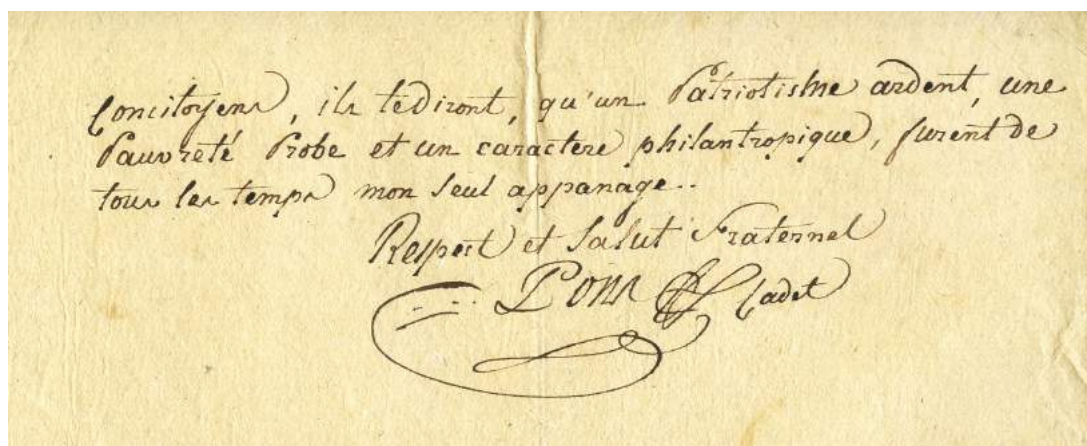 Concitoyens, ils te diront, qu'un Patriotisme ardent, une
Pauvreté Probe et un caractere philantropique, furent de
tous les temps mon seul appanage..
Respect et Salut Fraternel
Pons Cadet